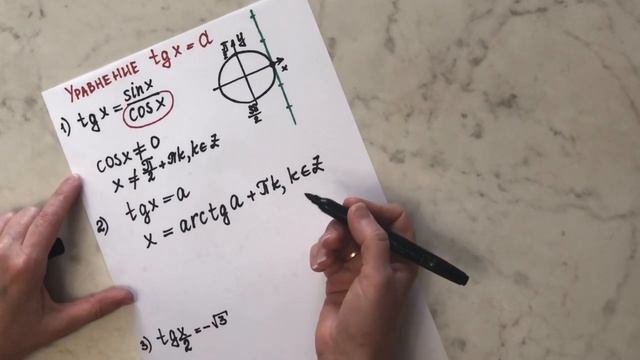 Уравнение tg x = a
1) tg x = sin x / cos x
π/2 y
x
3π/2
cos x ≠ 0
x ≠ π/2 + πk, k ∈ Z
2) tg x = a
x = arctg a + πk, k ∈ Z
3) tg x/2 = -√3